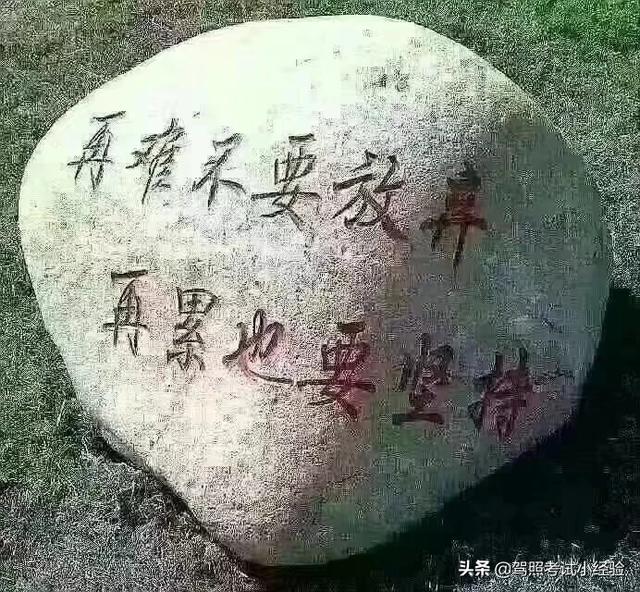 再难不要放弃
再累也要坚持
头条 @驾照考试小经验